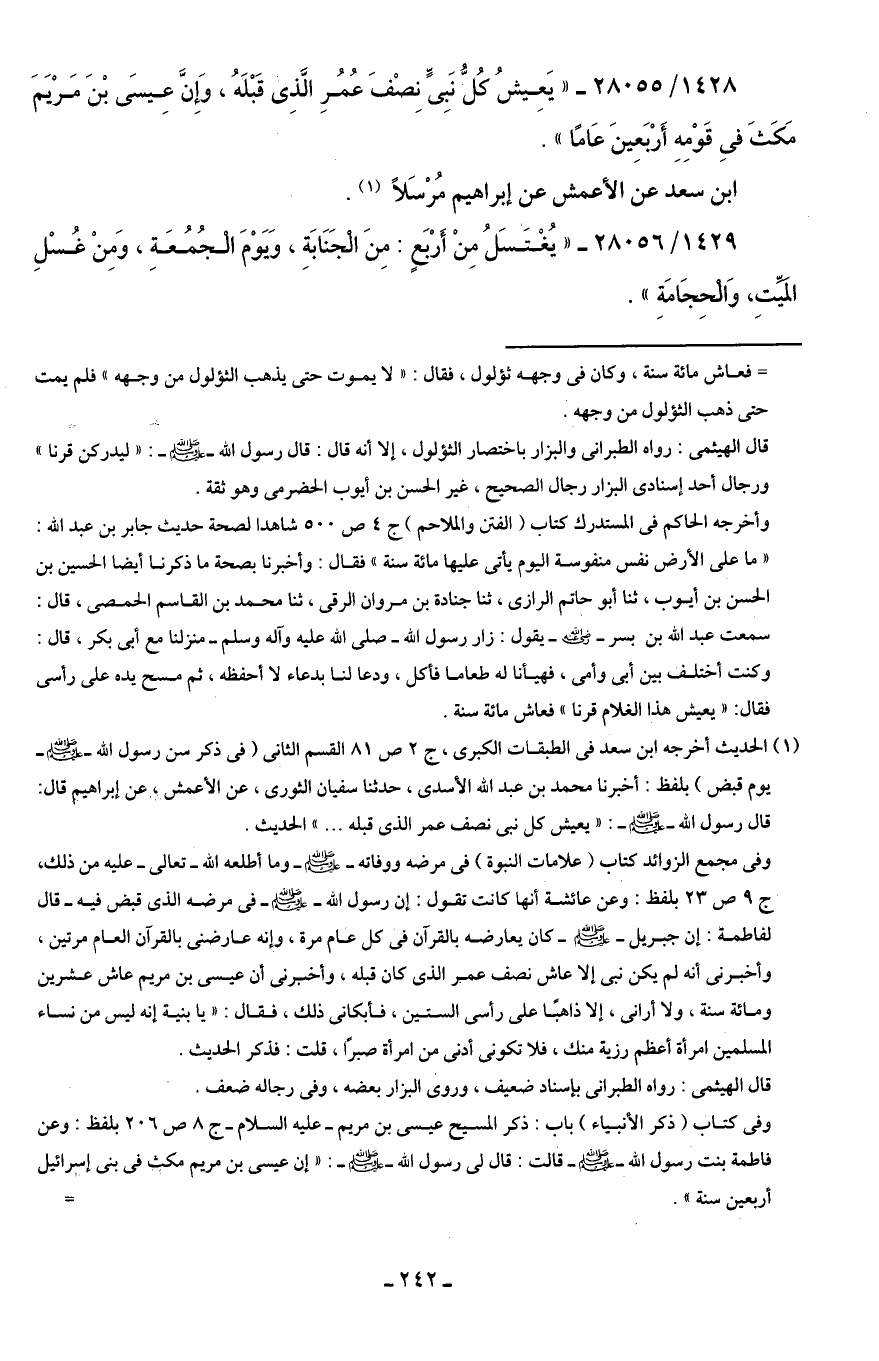 ٢٨٠٥٥/١٤٢٨ ـ « يَعِيشُ كُلُّ نَبِىٍّ نِصْفَ عُمُرِ الَّذِى قَبْلَهُ ، وَإِنَّ عِيسَى بْنَ مَرْيَمَ
مَكَثَ فِى قَوْمِهِ أَرْبَعِينَ عَامًا » .
ابن سعد عن الأعمش عن إبراهيم مُرْسَلاً (١) .
٢٨٠٥٦/١٤٢٩ ـ « يُغْتَسَلُ مِنْ أَرْبَعٍ : مِنَ الْجَنَابَةِ ، وَيَوْمَ الْجُمُعَةِ ، وَمِنْ غُسْلِ
الْمَيِّتِ، وَالْحِجَامَةِ » .
= فعاش مائة سنة ، وكان فى وجهه ثؤلول ، فقال : « لا يموت حتى يذهب الثؤلول من وجهه » فلم يمت
حتى ذهب الثؤلول من وجهه .
قال الهيثمى : رواه الطبرانى والبزار باختصار الثؤلول ، إلا أنه قال : قال رسول الله ـ ﷺ ـ : « ليدركن قرنا »
ورجال أحد إسنادى البزار رجال الصحيح ، غير الحسن بن أيوب الحضرمى وهو ثقة .
وأخرجه الحاكم فى المستدرك كتاب ( الفتن والملاحم ) ج ٤ ص ٥٠٠ شاهدا لصحة حديث جابر بن عبد الله :
« ما على الأرض نفس منفوسة اليوم يأتى عليها مائة سنة » فقال : وأخبرنا بصحة ما ذكرنا أيضا الحسين بن
الحسن بن أيوب ، ثنا أبو حاتم الرازى ، ثنا جنادة بن مروان الرقى ، ثنا محمد بن القاسم الحمصى ، قال :
سمعت عبد الله بن بسر ـ رضي الله عنه ـ يقول : زار رسول الله ـ صلى الله عليه وآله وسلم ـ منزلنا مع أبى بكر ، قال :
وكنت أختلف بين أبى وأمى ، فهيأنا له طعاما فأكل ، ودعا لنا بدعاء لا أحفظه ، ثم مسح يده على رأسى
فقال: « يعيش هذا الغلام قرنا » فعاش مائة سنة .
(١) الحديث أخرجه ابن سعد فى الطبقات الكبرى ، ج ٢ ص ٨١ القسم الثانى ( فى ذكر سن رسول الله ـ ﷺ ـ
يوم قبض ) بلفظ : أخبرنا محمد بن عبد الله الأسدى ، حدثنا سفيان الثورى ، عن الأعمش ، عن إبراهيم قال:
قال رسول الله ـ ﷺ ـ : « يعيش كل نبى نصف عمر الذى قبله ... » الحديث .
وفى مجمع الزوائد كتاب ( علامات النبوة ) فى مرضه ووفاته ـ ﷺ ـ وما أطلعه الله ـ تعالى ـ عليه من ذلك،
ج ٩ ص ٢٣ بلفظ : وعن عائشة أنها كانت تقول : إن رسول الله ـ ﷺ ـ فى مرضه الذى قبض فيه ـ قال
لفاطمة : إن جبريل ـ ﷺ ـ كان يعارضه بالقرآن فى كل عام مرة ، وإنه عارضنى بالقرآن العام مرتين ،
وأخبرنى أنه لم يكن نبى إلا عاش نصف عمر الذى كان قبله ، وأخبرنى أن عيسى بن مريم عاش عشرين
ومائة سنة ، ولا أرانى ، إلا ذاهبًا على رأسى الستين ، فأبكانى ذلك ، فقال : « يا بنية إنه ليس من نساء
المسلمين امرأة أعظم رزية منك ، فلا تكونى أدنى من امرأة صبرًا ، قلت : فذكر الحديث .
قال الهيثمى : رواه الطبرانى بإسناد ضعيف ، وروى البزار بعضه ، وفى رجاله ضعف .
وفى كتاب ( ذكر الأنبياء ) باب : ذكر المسيح عيسى بن مريم ـ عليه السلام ـ ج ٨ ص ٢٠٦ بلفظ : وعن
فاطمة بنت رسول الله ـ ﷺ ـ قالت : قال لى رسول الله ـ ﷺ ـ : « إن عيسى بن مريم مكث فى بنى إسرائيل
أربعين سنة » . =
ـ ٢٤٢ ـ